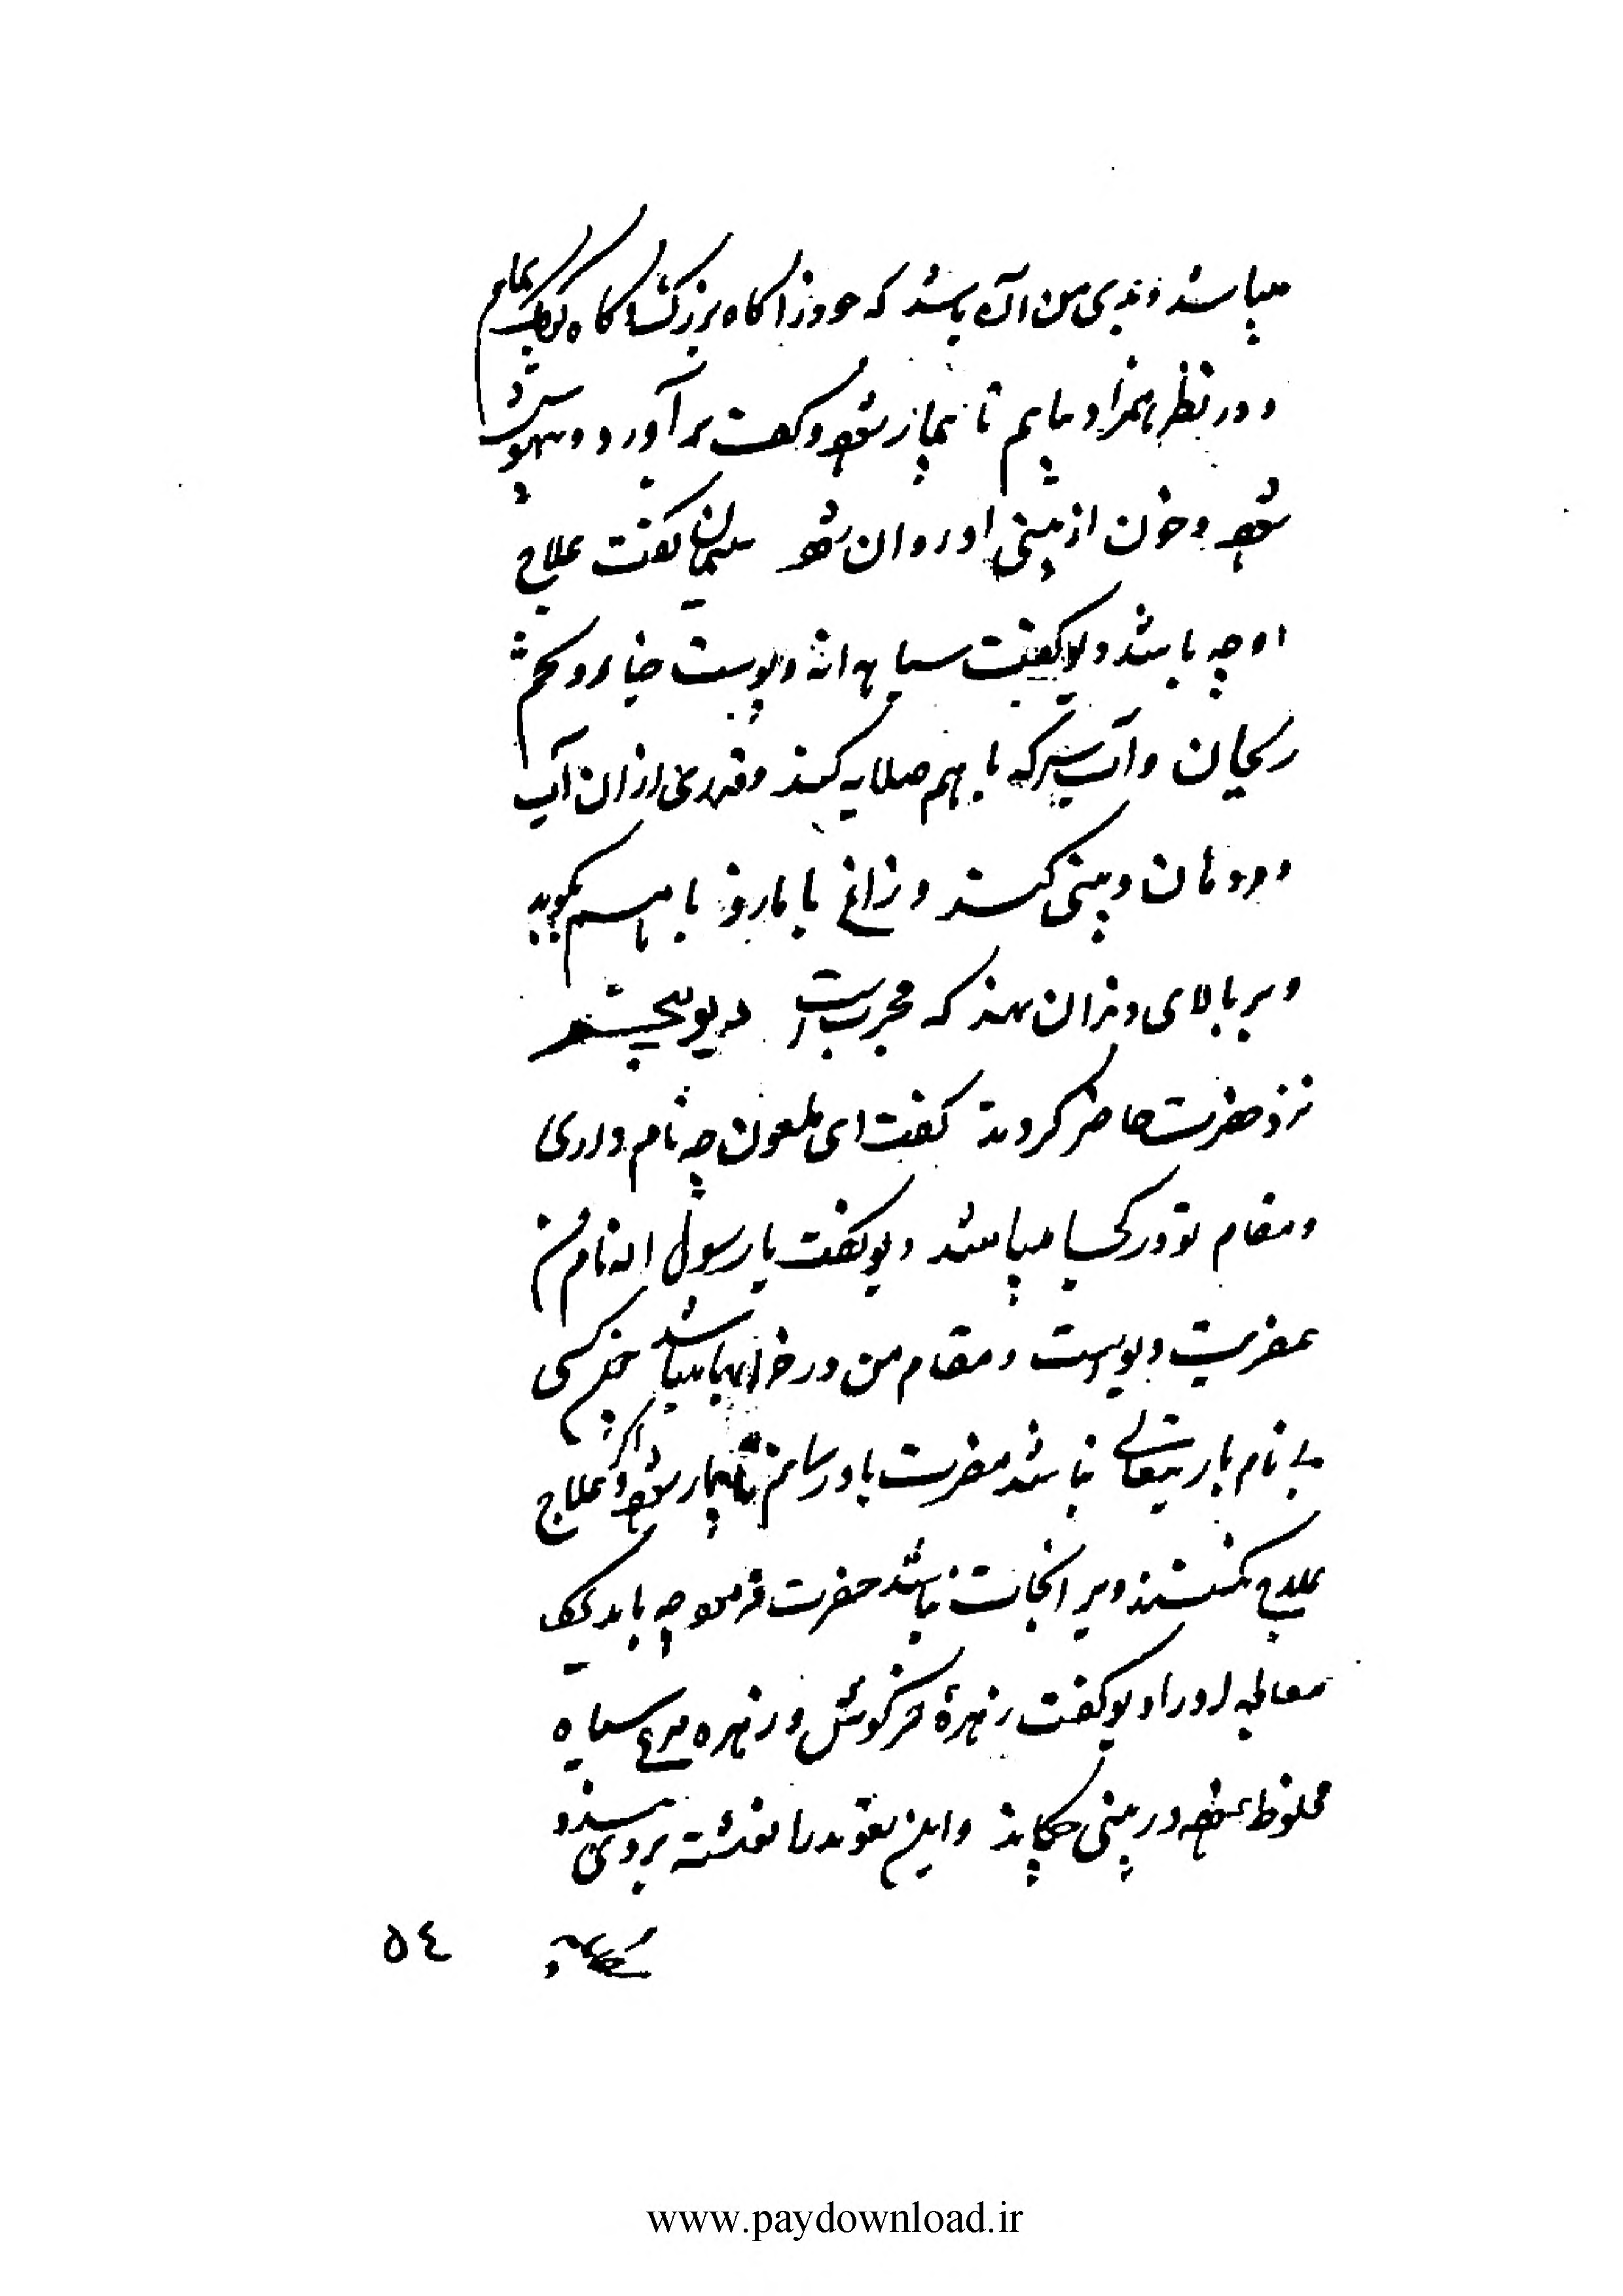 میباشد و بدی من آن باشد که خود را گاه بزرگ و گاه کوچک نمایم
و در نظر مردم آیم تا بیمار شود و کف برآورد و بیهوش
شود و خون از بینی او روان شود سلیمان گفت علاج
او چه باشد دیو گفت سیاه دانه و پوست خیار و تخم
ریحان و آب سرکه با هم صلایه کنند و قدری از آن آب
در دهان و بینی کنند و زاغ با مازو با هم بکوبد
و بر بالای دندان نهند که مجرب است دیو پنجم
نزد حضرت حاضر کردند گفت ای ملعون چه نام داری
و مقام تو در کجا میباشد دیو گفت یا رسول اله نام من
عفریت دیو است و مقام من در خرابها میباشد چون کسی
بی نام باریتعالی باشد مضرت بدو رسانم تا بیمار شود و اگر علاج
علاج نکنند ویرا نجات نباشد حضرت فرمود چه باید کرد
معالجه او را دیو گفت زهرهٔ خرگوش و زهره مرغ سیاه
مخلوط نموده در بینی چکاند و این تعویذ را نوشته بر وی بندد
۵٤
www.paydownload.ir